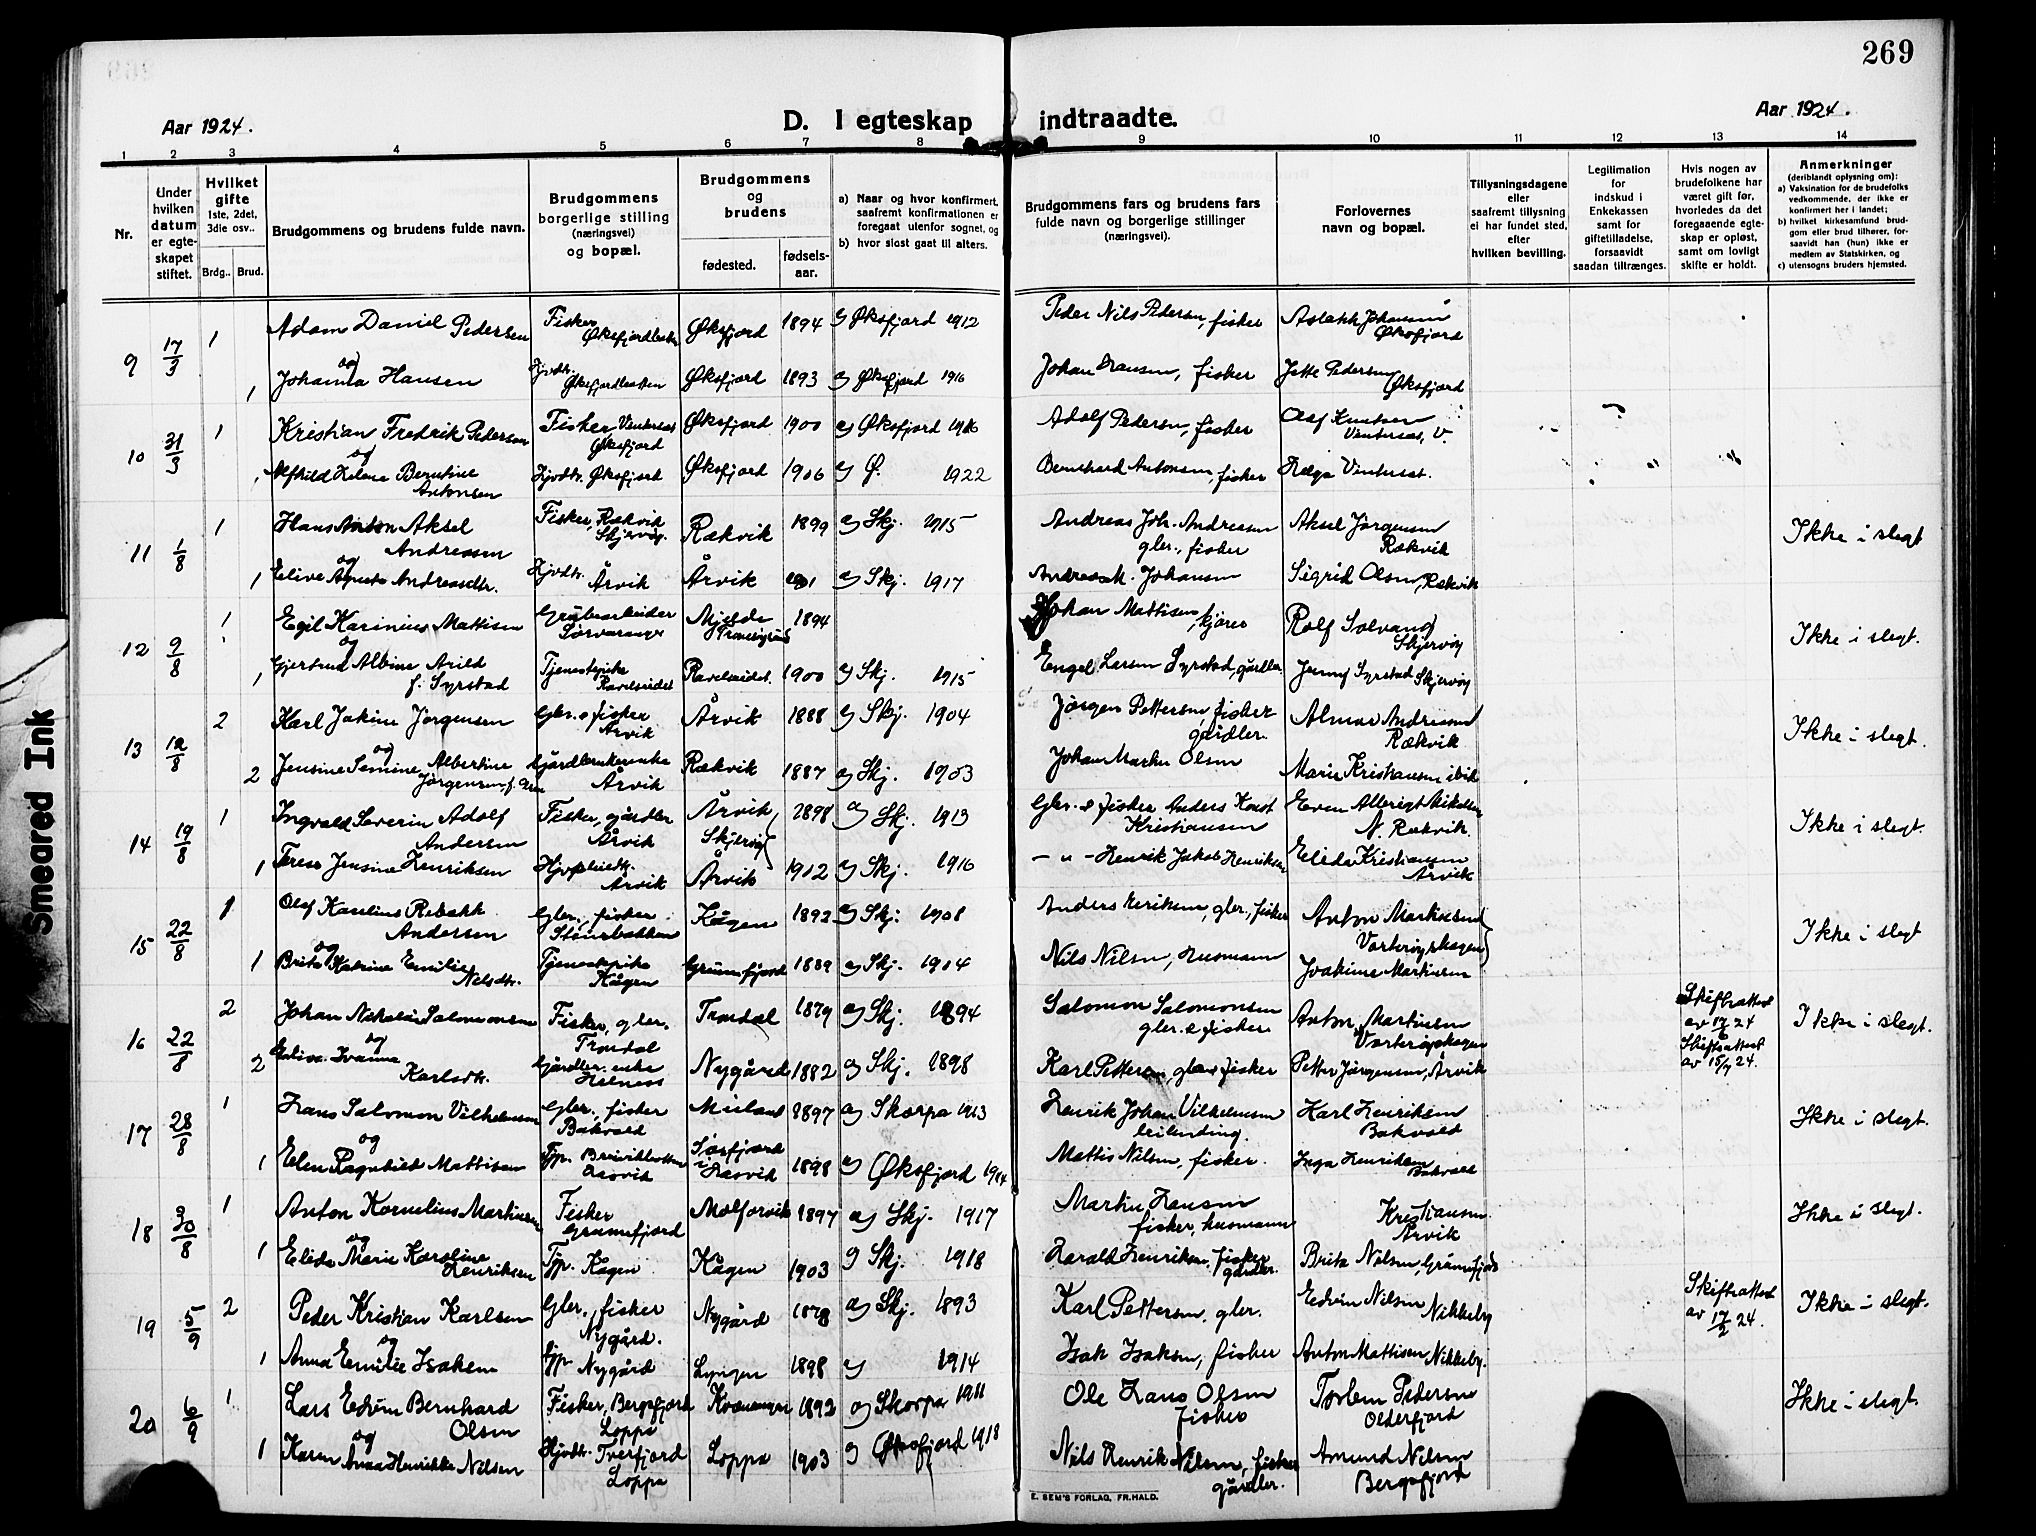 269
Aar 1924.
D. I egteskap indtraadte.
Aar 1924.
1 2 3 4 5 6 7 8 9 10 11 12 13 14
Nr.
Under hvilken datum er egteskapet stiftet.
Hvilket gifte 1ste, 2det, 3die osv..
Brdg.. Brud.
Brudgommens og brudens fulde navn.
Brudgommens borgerlige stilling (næringsvei) og bopæl.
Brudgommens og brudens
fødested. fødsels-aar.
a) Naar og hvor konfirmert, saafremt konfirmationen er foregaat utenfor sognet, og
b) hvor sidst gaat til alters.
Brudgommens fars og brudens fars fulde navn og borgerlige stillinger (næringsvei).
Forlovernes navn og bopæl.
Tillysningsdagene eller saafremt tillysning ei har fundet sted, efter hvilken bevilling.
Legitimation for indskud i Enkekassen samt for giftetilladelse, forsaavidt saadan tiltrænges.
Hvis nogen av brudefolkene har været gift før, hvorledes da det foregaaende egteskap er opløst, samt om lovligt skifte er holdt.
Anmerkninger (deriblandt oplysning om):
a) Vaksination for de brudefolks vedkommende, der ikke er konfirmert her i landet;
b) hvilket kirkesamfund brudgom eller brud tilhører, forsaavidt han (hun) ikke er medlem av Statskirken, og
c) utensogns bruders hjemsted.
9 17/3 1 Adam Daniel Pedersen Fisker Øksfjord 1894 a) Øksfjord 1912 Peder Nils Pedersen, fisker Aslakk Johansen Øksfjord
og
1 Johanna Hansen Hjvdtr. Øksfjordbotten Øksfjord 1893 a) Øksfjord 1916 Johan Hansen, fisker Jette Pedersen Øksfjord
10 31/3 1 Kristian Fredrik Pedersen Fisker Øksfjord Øksfjord 1900 a) Øksfjord 1916 Adolf Pedersen, fisker Olaf Knutsen
og
1 Alfhild Helene Berntine Antonsen Hjvdtr. Øksfjord Øksfjord 1906 a) Ø. 1922 Bernhard Antonsen, fisker Helga
11 1/8 1 Hans Anton Aksel Andreasen Fisker, Rækvik Skjervøy. Rækvik 1899 a) Skj. 1915 Andreas Joh. Andreasen gler., fisker Aksel Jørgensen Rækvik Ikke i slegt
og
1 Elive Agneta Andreasdtr. Hjvdtr. Årvik Årvik 1901 a) Skj. 1917 Andreas M. Johansen Sigrid Olsen, Rækvik
12 9/8 1 Egil Karinius Mattisen Grubearbeider Sørvaranger Mjelde 1894 Johan Mattisen, kjører Rolf Solvang Skjervøy Ikke i slegt.
og
1 Gjertrud Albine Arild f. Syrstad Tjenestepike Ravelseidet Ravelseidet. 1900 a) Skj. 1915 Engel Larsen Syrstad, gårdbr. Jenny Syrstad Skjervøy
13 12/8 2 Karl Jakim Jørgensen Gbr. & fisker Årvik Årvik 1888 a) Skj. 1904 Jørgen Pettersen, fisker gårdbr. Almar Andreasen Rækvik Ikke i slegt.
og
2 Jensine Semine Albertine Jørgensen Gårdbrukerenke Årvik Rækvik 1887 a) Skj. 1903 Johan Martin Olsen Marie Kristiansen ibid
14 19/8 1 Ingvald Severin Adolf Andersen Fisker, gårdbr Årvik Årvik, Skjervøy 1898 a) Skj. 1913 Gbr. & fisker Anders Kristiansen Even Albrigt Mikkelsen N. Rækvik. Ikke i slegt.
1 Terese Jensine Henriksen Årvik Årvik 1902 a) Skj. 1916 – " – Henrik Jakob Henriksen Elida Kristiansen Årvik
15 22/8 1 Olaf Karelius Rebakk Andersen Gbr., fisker Kågen 1892 a) Skj. 1908 Anders Eriksen, gbr., fisker Anton Martinsen Vorterøyskagen Ikke i slegt
og
1 Brita Katrine Emilie Nilsdtr. Tjenestepike Kågen Grunnfjord 1889 a) Skj. 1904 Nils Nilsen, husmann Joakime Martinsen
16 22/8 2 Johan Nikolai Salomonsen Fisker, gbr. Trondal Trondal 1879 a) Skj. 1894 Salomon Salomonsen gbr. & fisker Anton Martinsen Vorterøyskagen Skifteattest av 24 Ikke i slegt.
og
2 Karlsdtr. Gårdbr. enke Helness Nygård 1882 a) Skj. 1898 Karl Pettersen, gbr & fisker Petter Jørgensen, Årvik Skifteattest av 15/7 24.
17 28/8 1 Hans Salomon Vilhelmsen Gbr., fisker Bakvold 1897 a) Skorpa 1913 Henrik Johan Vilhelmsen leilending. Karl Henriksen Bakvold Ikke i slegt.
og
1 Elen Ragnhild Mattisen Tjp. Hasvik Hasvik 1898 a) Øksfjord 1914 Mattis Nilsen, fisker. Inga Henriksen Bakvold
18 30/8 1 Anton Kornelius Martinsen Fisker Grunnfjord 1897 a) Skj. 1917 Martin Hansen fisker, husmann Kristiansen Årvik Ikke i slegt.
og
1 Elida Marie Karoline Henriksen Tjp. Kågen Kågen 1903 a) Skj. 1918 Harald Henriksen, fisker gårdbr. Brita Nilsen, Grunnfjord
19 5/9 2 Peder Kristian Karlsen Gbr., fisker Nygård. Nygård 1878 a) Skj. 1893 Karl Pettersen, gbr. Edvin Nilsen Nikkeby Skifteattest av 17/2 24. Ikke i slegt.
og
1 Anna Emilie Isaksen Tjp. Nygård Lyngen 1898 a) 1914 Isak Isaksen, fisker Anton Mattisen Nikkeby.
20 6/9 1 Lars Edvin Bernhard Olsen Fisker, Bergsfjord Loppa Kvænangen 1892 a) Skorpa 1911 Ole Hans Olsen fisker Torlem Pedersen Olderfjord Ikke i slegt.
og
1 Karen Anna Henrikke Nilsen Hjvdtr. Tverfjord Loppa Loppa 1903 a) Øksfjord 1918 Nils Henrik Nilsen, fisker gårdbr. Amund Nilsen Bergsfjord
E. SEM'S FORLAG, FR.HALD.
Smeared Ink